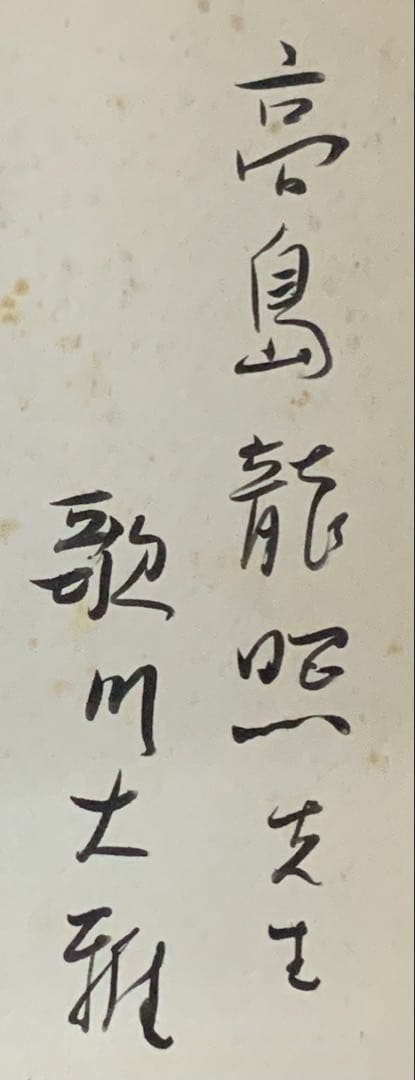 高島龍照先生
歌川大雅